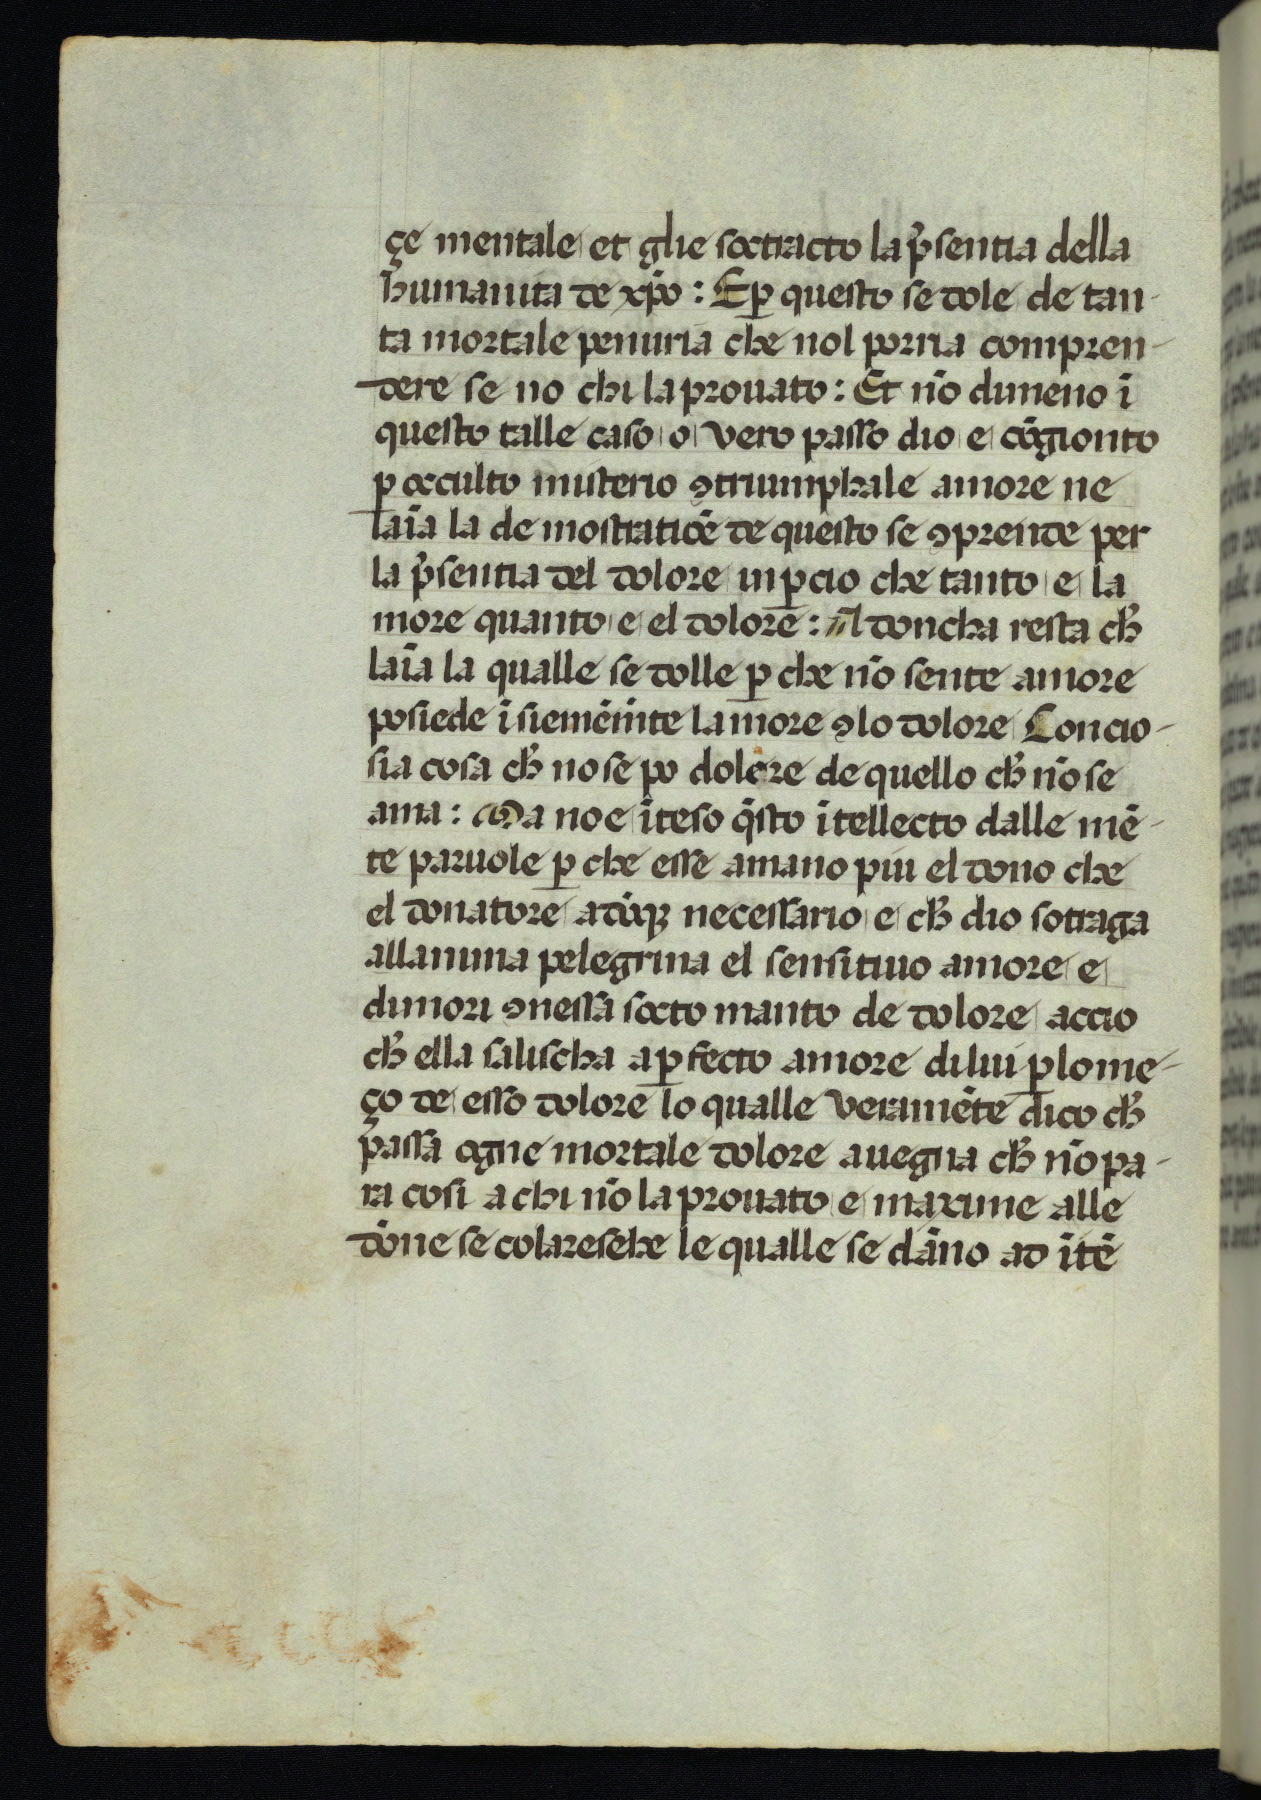 çe mentale et glie soctracto la p̃sentia della
humanita de xp̃o : E ꝑ questo se dole de tan-
ta mortale penuria che nol porria compren-
dere se no chi la prouato : Et nō dimeno ī
questo talle caso o vero passo dio e cōgionto
ꝑ occulto misterio ꝯ triumphale amore ne
laīa la de mostratiōē de questo se ꝯprende per
la p̃sentia del dolore inꝑcio che tanto e la
more quanto e el dolore : Adoncha resta cħ
laīa la qualle se dolle ꝑ che nō sente amore
posiede ī siemēmte lamore ꝯ lo dolore Concio-
sia cosa cħ no se po dolere de quello cħ nō se
ama : Ma no e īteso q̄sto ītellecto dalle mē-
te paruole ꝑ che esse amano piu el dono che
el donatore adūqꝫ necessario e cħ dio sotraga
allanima pelegrina el sensitiuo amore e
dimori ꝯ nessa socto manto de dolore accio
cħ ella salischa a ꝑfecto amore di lui ꝑ lo me-
ço de esso dolore lo qualle veramēte dico cħ
passa ogne mortale dolore auegna cħ nō pa-
ra cosi a chi nō la prouato e maxime alle
dōne se colaresche le qualle se dāno ad ītē